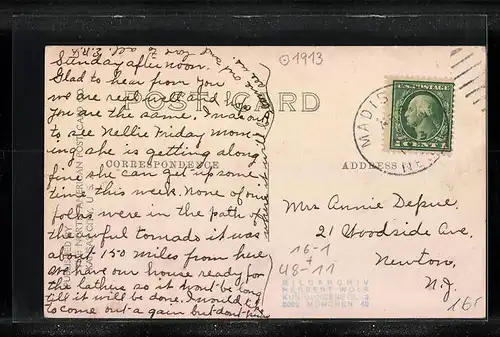 Sunday afternoon.
Glad to hear from you
we are real well and hope
you are the same. I was out
to see Nellie Friday morn-
ing she is getting along
fine she can get up some
time this week. None of our
folks were in the path of
the awful tornado it was
about 150 miles from here
We have our house ready for
the lathers so it won't be long
till it will be done. I would like
to come out a gain but don't
love to all. E.R.H.
POST CARD
CORRESPONDENCE
ADDRESS
PUBLISHED BY
THE NORTH AMERICAN POST CARD CO.
KANSAS CITY, U. S. A.
©1913
MADIS
NE
U.S. POSTAGE
CENT
Mrs Annie Depue.
21 Woodside Ave.
Newton,
N.J.
16-1
+
48-11
BILDARCHIV
HERBERT WOLF
8000 MÜNCHEN 40